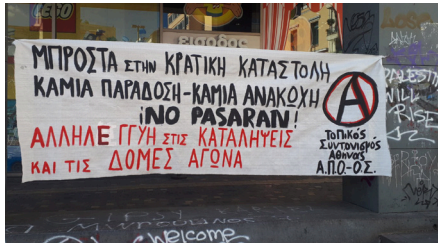 Είσοδος
ΜΠΡΟΣΤΑ ΣΤΗΝ ΚΡΑΤΙΚΗ ΚΑΤΑΣΤΟΛΗ
ΚΑΜΙΑ ΠΑΡΑΔΟΣΗ-ΚΑΜΙΑ ΑΝΑΚΩΧΗ
¡NO PASARAN!
ΑΛΛΗΛΕΓΓΥΗ ΣΤΙΣ ΚΑΤΑΛΗΨΕΙΣ
ΚΑΙ ΤΙΣ ΔΟΜΕΣ ΑΓΩΝΑ
Α
ΤΟΠΙΚΟΣ
ΣΥΝΤΟΝΙΣΜΟΣ
ΑΘΗΝΑΣ
Α.Π.Ο.-Ο.Σ.
PALESTI
WILL
RISE
Welcome